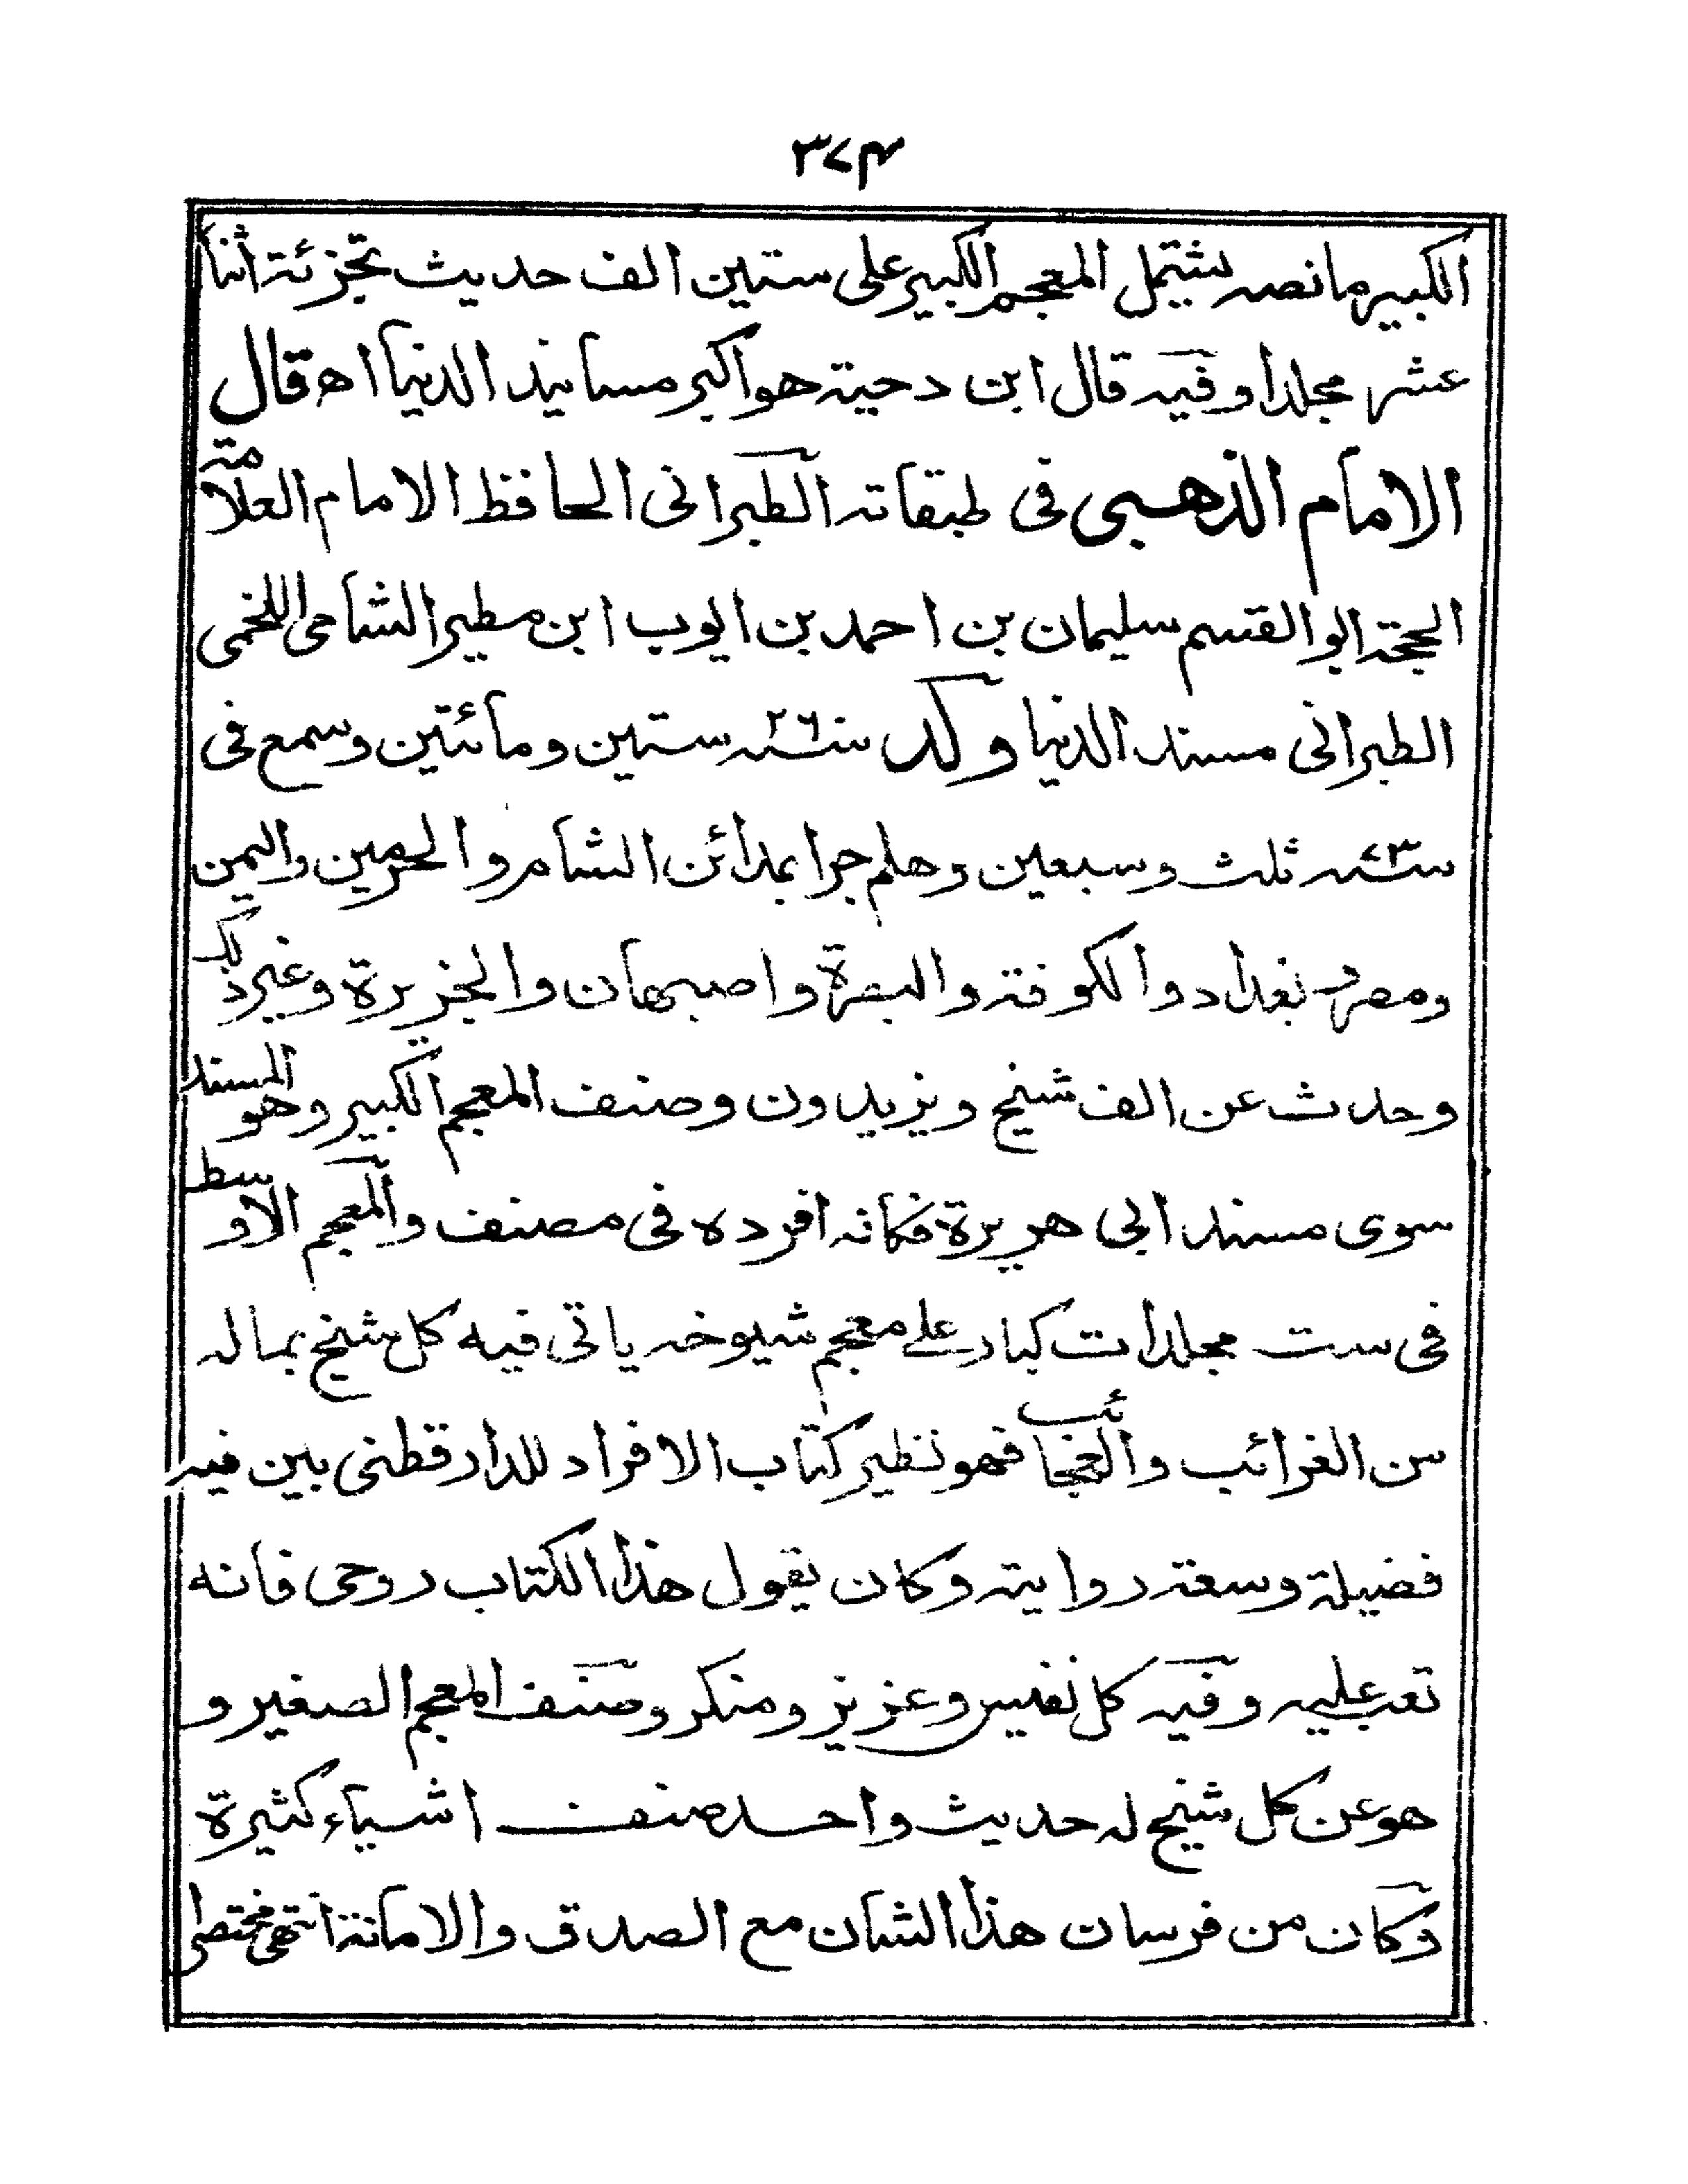 ٣٧٤
الكبير ما نصه يشتمل المعجم الكبير على ستين الف حديث تجزئة اثنا
عشر مجلدا وفيه قال ابن دحية هو اكبر مسانيد الدنيا اه قال
الامام الذهبي فى طبقاته الطبرانى الحافظ الامام العلامة
الحجة ابو القسم سليمان بن احمد بن ايوب ابن مطير الشامى اللخمى
الطبرانى مسند الدنيا ولد سنة ٢٦٠ ستين ومائتين وسمع فى
سنة ٧٣ ثلث وسبعين وهلم جرا بمدائن الشام والحرمين واليمن
ومصر وبغداد والكوفة والبصرة واصبهان والجزيرة وغير ذلك
وحدث عن الف شيخ ويزيدون وصنف المعجم الكبير وهو المسند
سوى مسند ابى هريرة فكانه افرده فى مصنف والمعجم الاوسط
فى ست مجلدات كبار على معجم شيوخه ياتى فيه كل شيخ بماله
من الغرائب والعجائب فهو نظير كتاب الافراد للدارقطنى بين فيه
فضيلة وسعة روايته وكان يقول هذا الكتاب روحى فانه
تعب عليه وفيه كل نفيس وعزيز ومنكر وصنف المعجم الصغير و
هو عن كل شيخ له حديث واحد صنف اشياء كثيرة
وكان من فرسان هذا الشان مع الصدق والامانة انتهى مختصرا